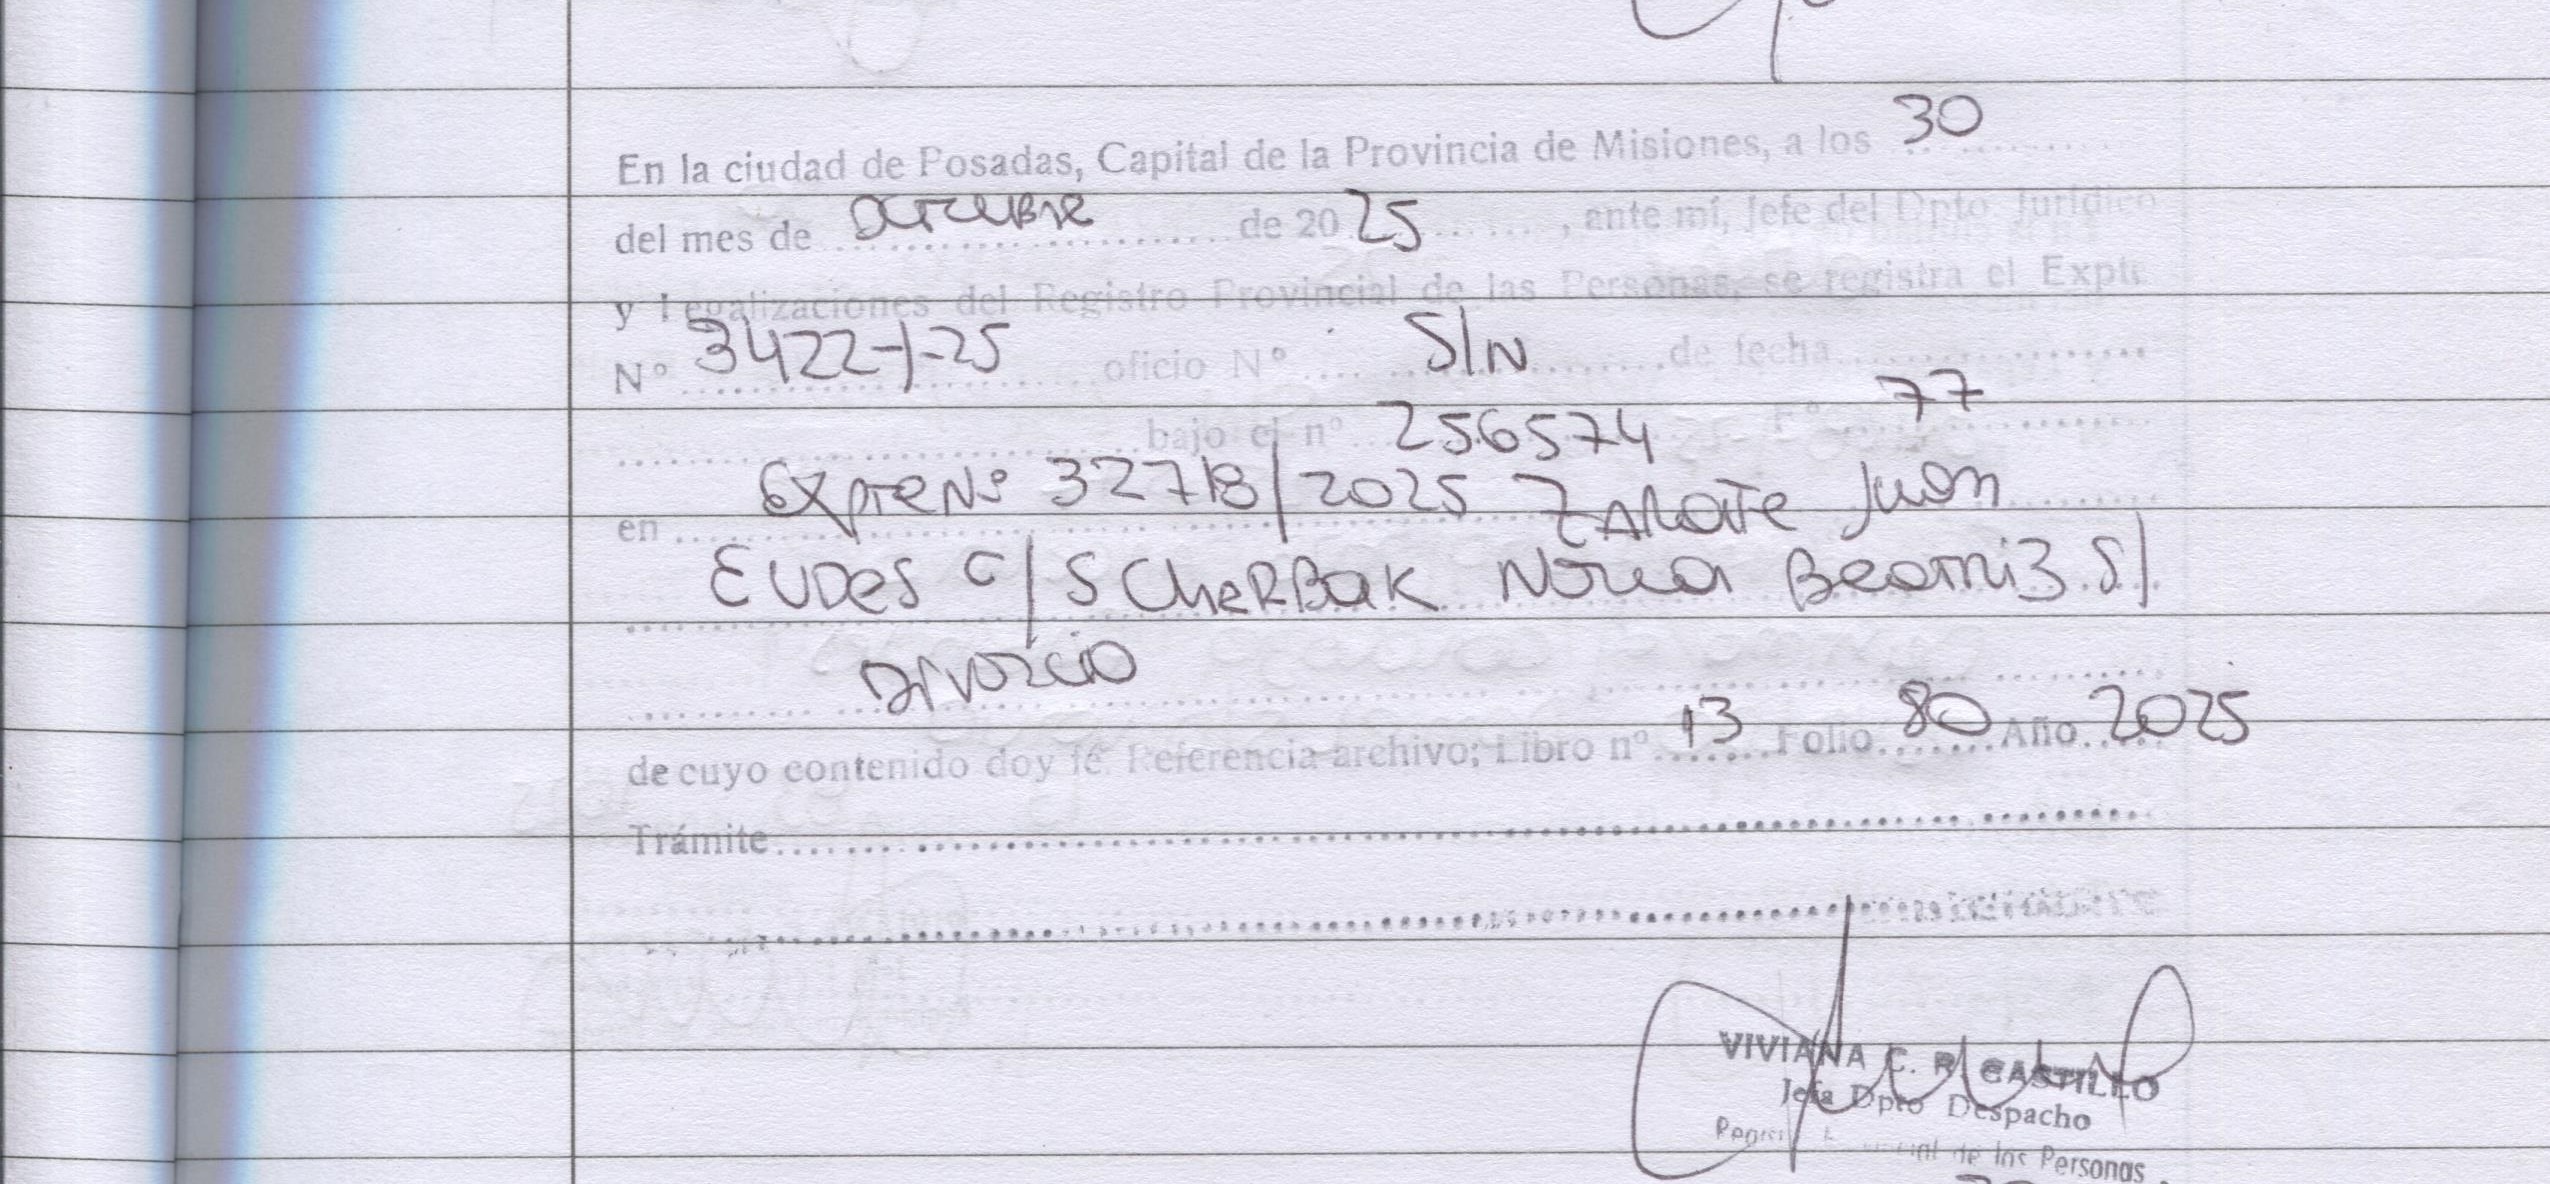 En la ciudad de Posadas, Capital de la Provincia de Misiones, a los 30
del mes de octubre de 2025, ante mí, Jefe del Dpto. Jurídico
y Legalizaciones del Registro Provincial de las Personas, se registra el Expte
Nº 3422-/-25 oficio Nº S/N de fecha
bajo el nº 256574 Fº 77
en Expte Nº 32718/2025 ZARATE Juan
EUDES C/ SCHERBAK Beatriz S/
Divorcio
de cuyo contenido doy fé. Referencia archivo; Libro nº 13 Folio 80 Año 2025
Trámite
VIVIANA C. R. CASTILLO
Jefa Dpto Despacho
de las Personas